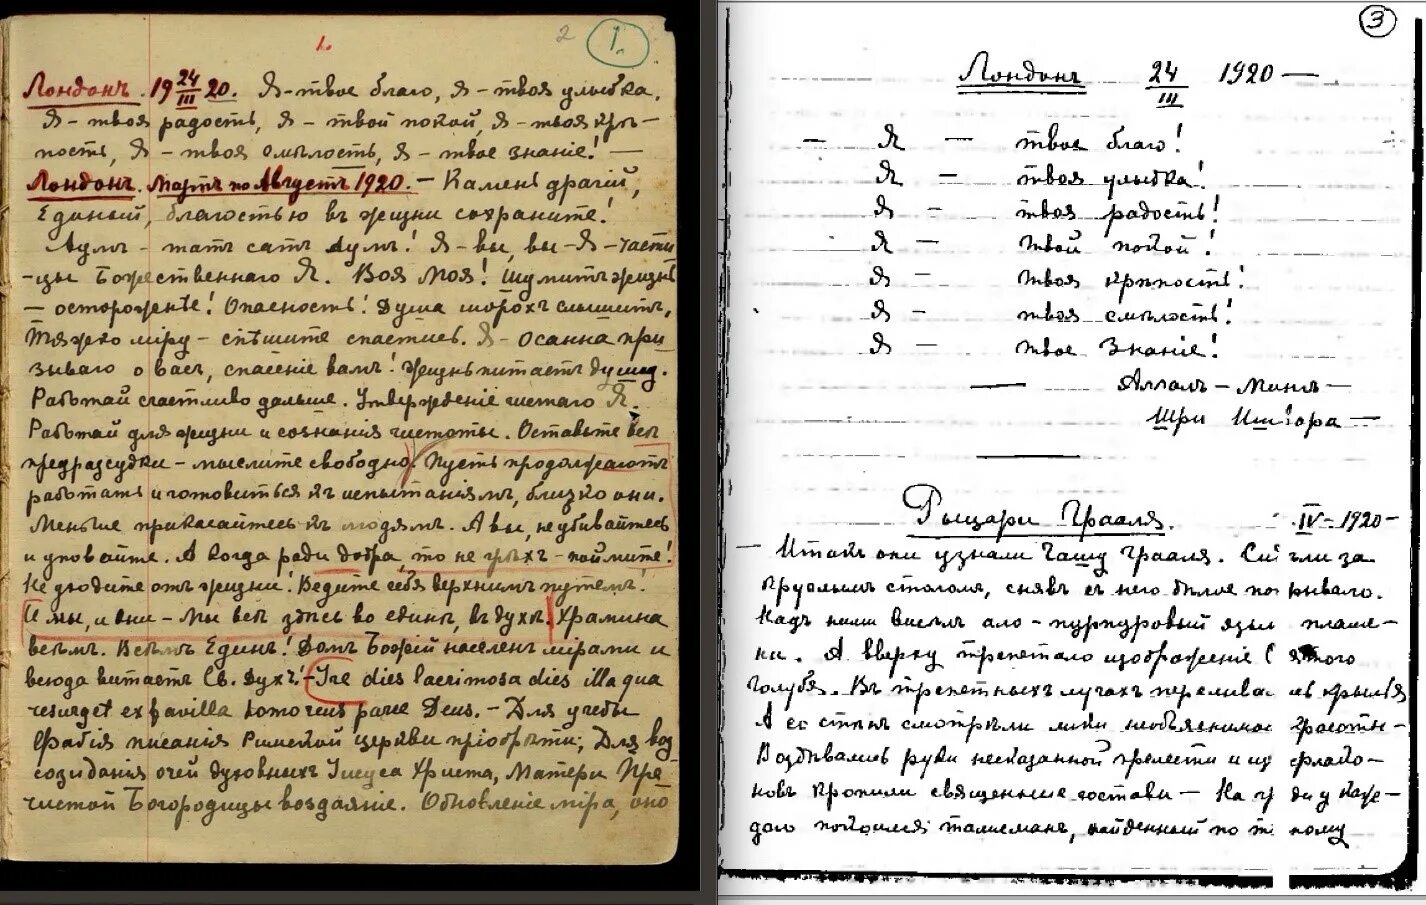 1.
2
1.
Лондонъ. 19 24/III 20. Я – твое благо, Я – твоя улыбка,
Я – твоя радость, Я – твой покой, Я – твоя крѣ–
пость, Я – твоя смѣлость, Я – твое знаніе! —
Лондонъ. Мартъ по Августъ 1920. – Камень драгій,
Единый, благостью въ жизни сохраните!
Аумъ – татъ сатъ Аумъ! Я – вы, вы – Я – части
–цы Божественнаго Я. Воя Моя! Шумитъ жизнь
– осторожнѣе! Опасность! Душа шорохъ слышитъ,
Тяжко міру – спѣшите спастись. Я – Осанна при
зываю о васъ, спасеніе вамъ! Жизнь питаетъ душу.
Работай счастливо дальше. Утвержденіе чистаго Я.
Работай для жизни и сознанія чистоты. Оставьте всѣ
предразсудки – мыслите свободно. Пусть продолжаютъ
работать и готовиться къ испытаніямъ, близко они.
Меньше прикасайтесь къ людямъ. А вы, не убивайтесь
и уповайте. А когда ради добра, то не грѣхъ – поймите!
Не уходите отъ жизни! Ведите себя верхнимъ путемъ!
И мы, и они – Мы всѣ здѣсь во единѣ, въ духѣ. Храмина
всѣмъ. Всѣмъ Единъ! Домъ Божій населенъ мірами и
всюду витаетъ Св. Духъ! – Ire dies lacrimosa dies illa qua
resurget ex favilla homo reus parce Deus. – Для учебы
писанія Римской церкви пріобрѣти; Для воз
созиданія очей духовныхъ Іисуса Христа, Матери Пре–
чистой Богородицы воздаяніе. Обновленіе міра, оно
3
Лондонъ 24/III 1920 —
– Я – твое благо!
Я – твоя улыбка!
Я – твоя радость!
Я – твой покой!
Я – твоя крѣпость!
Я – твоя смѣлость!
Я – твое знаніе!
— Аллалъ – Мингъ –
Шри Ишвара –
Рыцари Грааля. IV – 1920 –
– Итакъ они узнали Чашу Грааля. Сѣ ли за
круглымъ столомъ, снявъ съ него бѣлое по рывало.
Надъ ними висѣлъ ало – пурпуровый язы пламе –
ни. А вверху трепетало изображеніе С ятого
Голубя. Въ трепетныхъ лучахъ перелива сь крылья
А со стѣнъ смотрѣли лики необъяснимо красоты –
Воздѣвались руки несказанной прелести и из фіало –
новъ кропили священные составы – На гр ди у каж –
даго покоился талисманъ, найденный по т ному